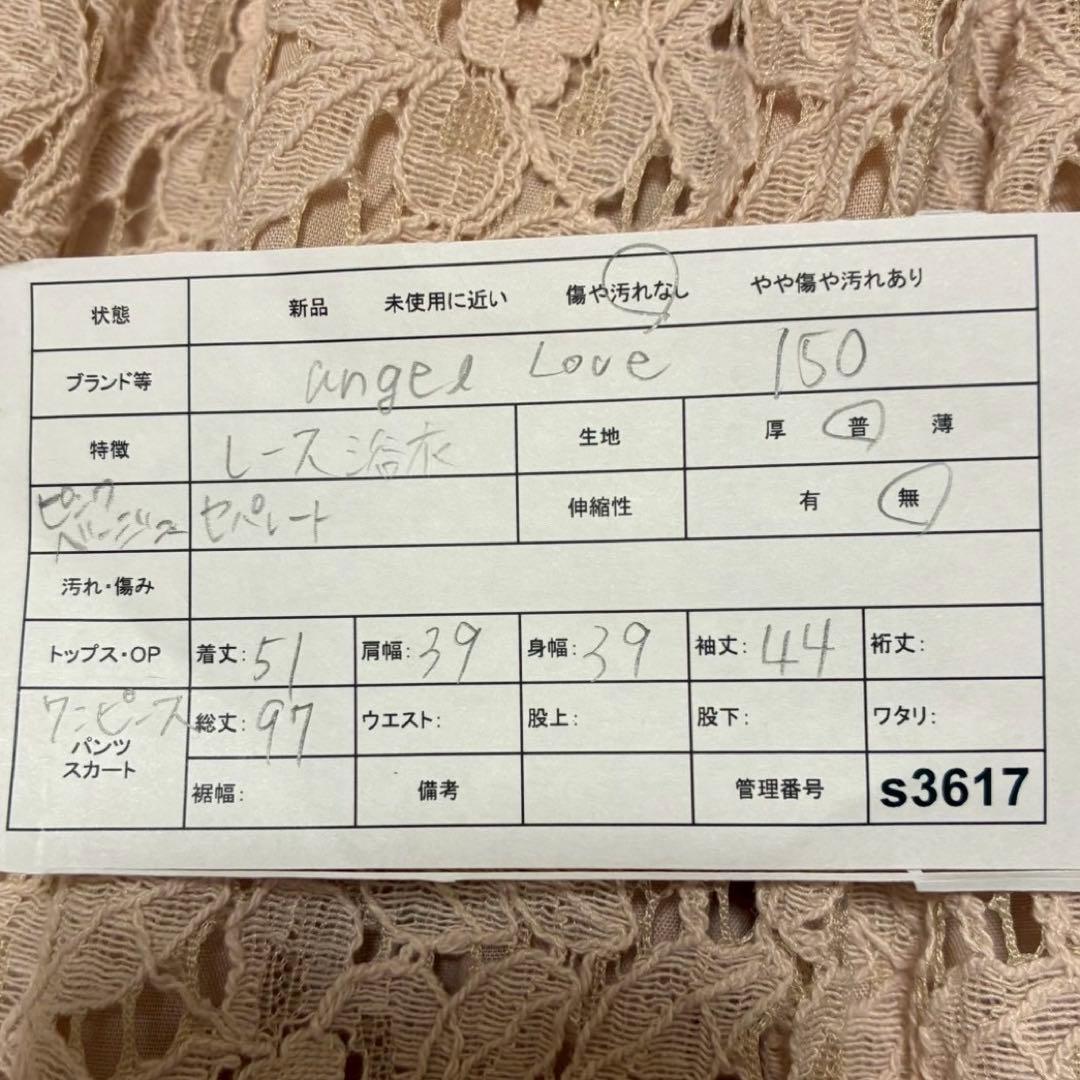 状態 新品 未使用に近い 傷や汚れなし やや傷や汚れあり
ブランド等 angel Love 150
特徴 レース浴衣 生地 厚 普 薄
ピンクベージュ セパレート 伸縮性 有 無
汚れ・傷み
トップス・OP 着丈:51 肩幅:39 身幅:39 袖丈:44 裄丈:
ワンピース 総丈:97 ウエスト: 股上: 股下: ワタリ:
パンツ
スカート
裾幅: 備考 管理番号 s3617